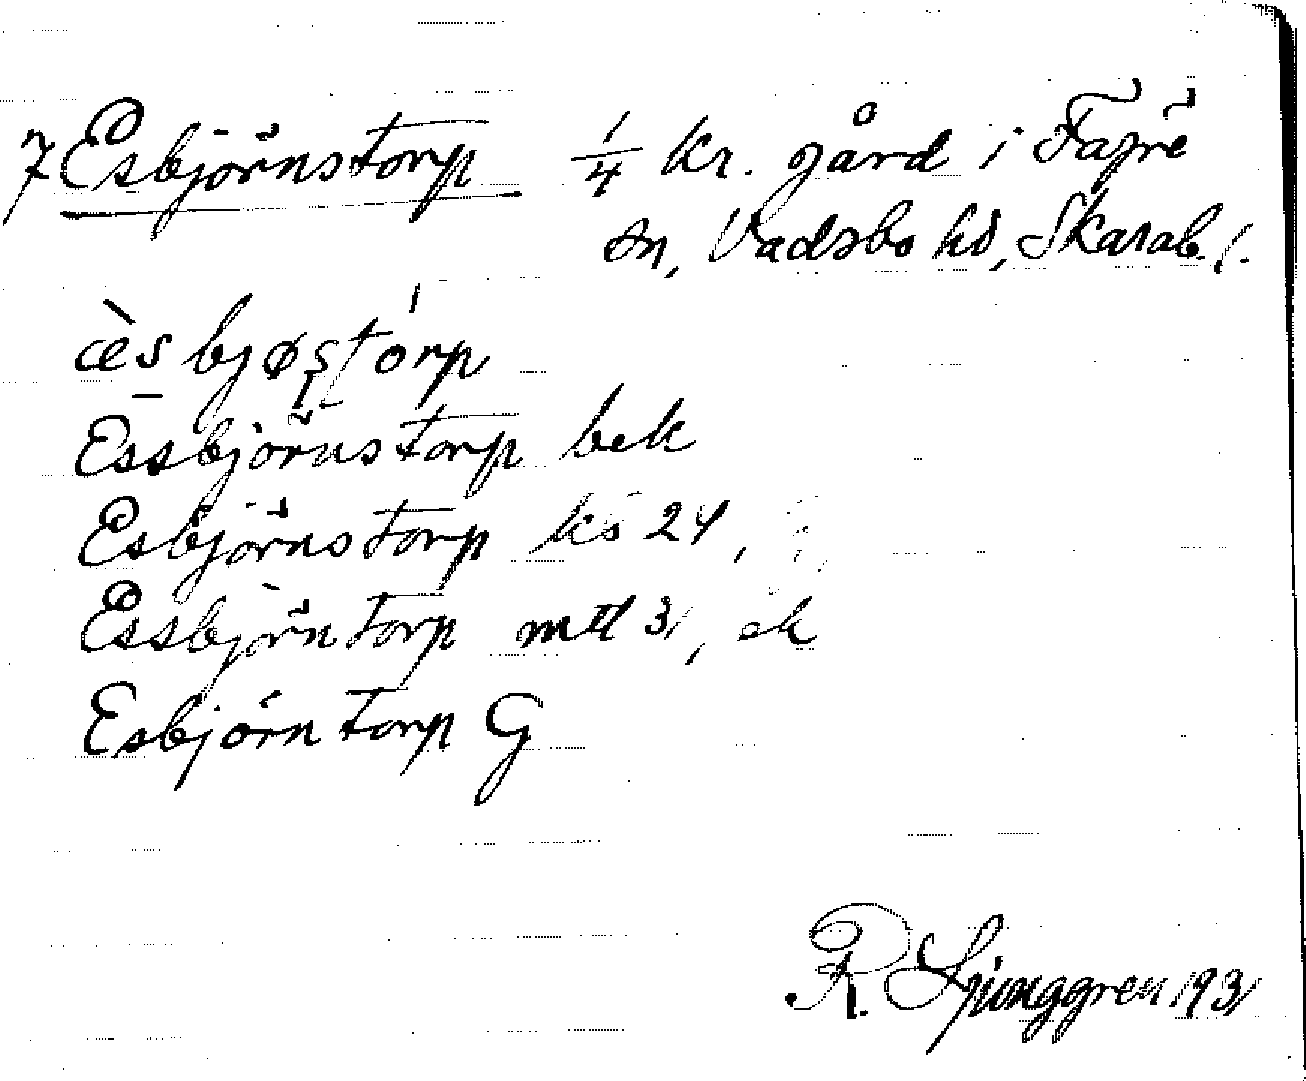 7 Esbjörnstorp 1/4 kr. gård i Fägre
sn, Vadsbo hd, Skarab. l.
æ̀sbjøṣtórp
Essbjörnstorp bek
Esbjörnstorp ks 24,
Essbjörntorp mtl 31, ek
Esbjörntorp G
R. Ljunggren 1931